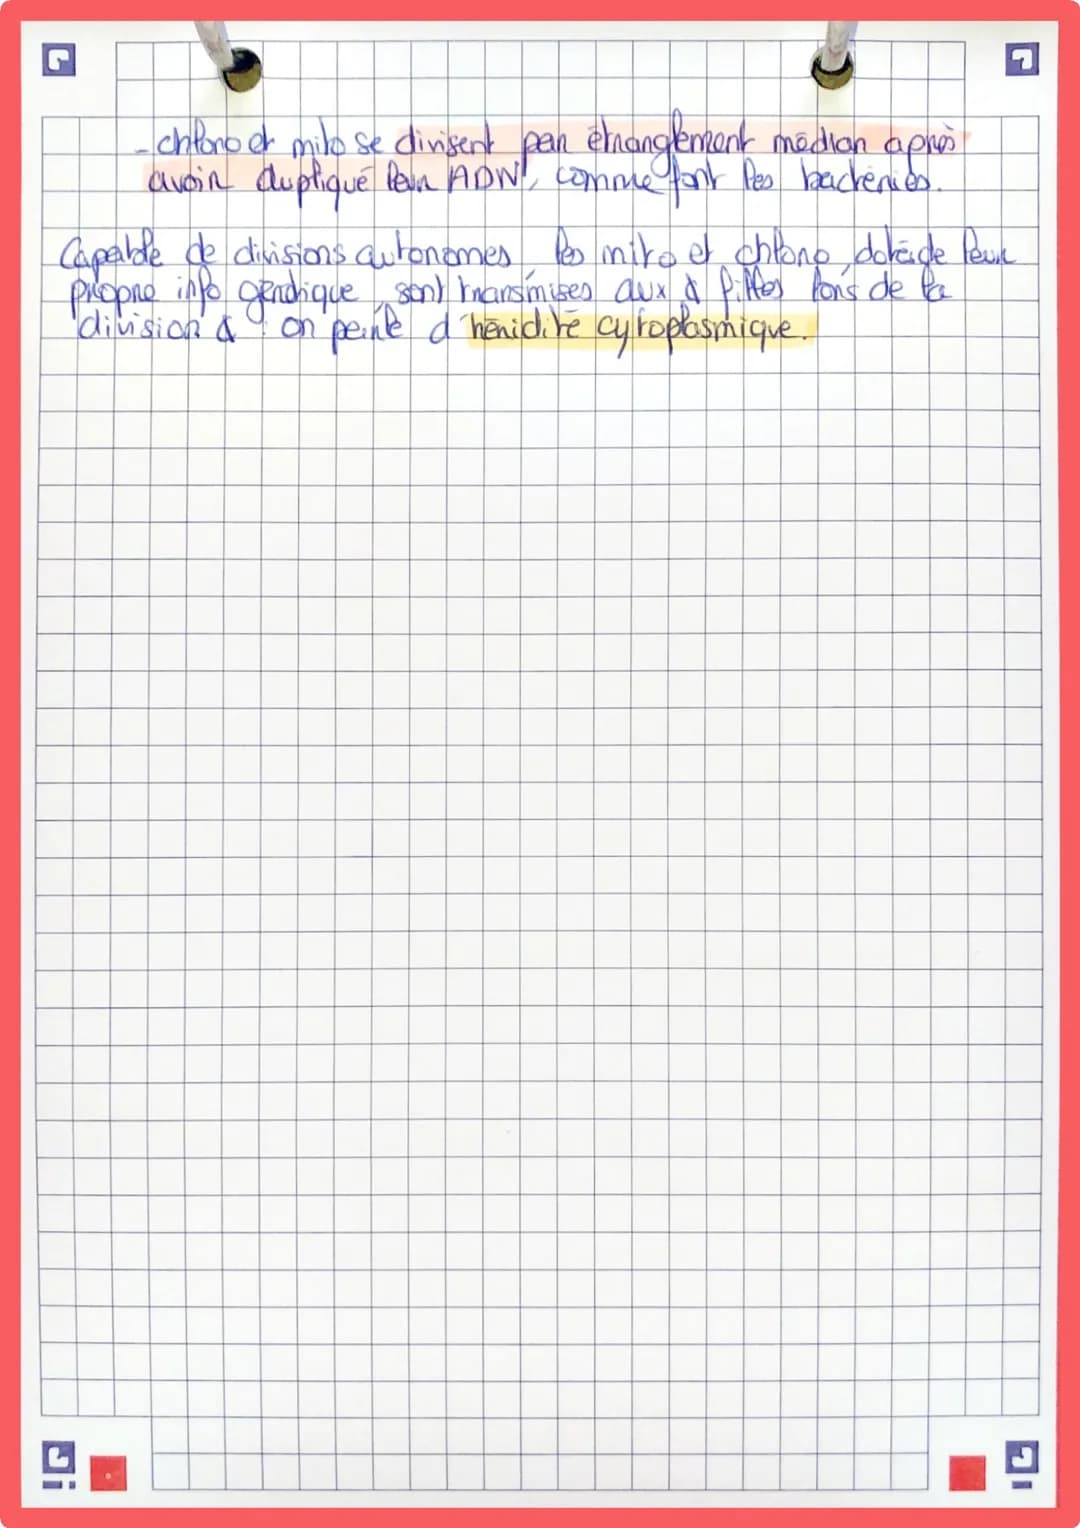 - chloro et mito se divisent par étranglement médian après
avoir dupliqué leur ADN, comme font les bactéries.
Capable de divisions autonomes, les mito et chloro, dotée de leur
propre info génétique, sont transmises aux ¢ filles lors de la
division ¢ : on parle d'hérédité cytoplasmique.